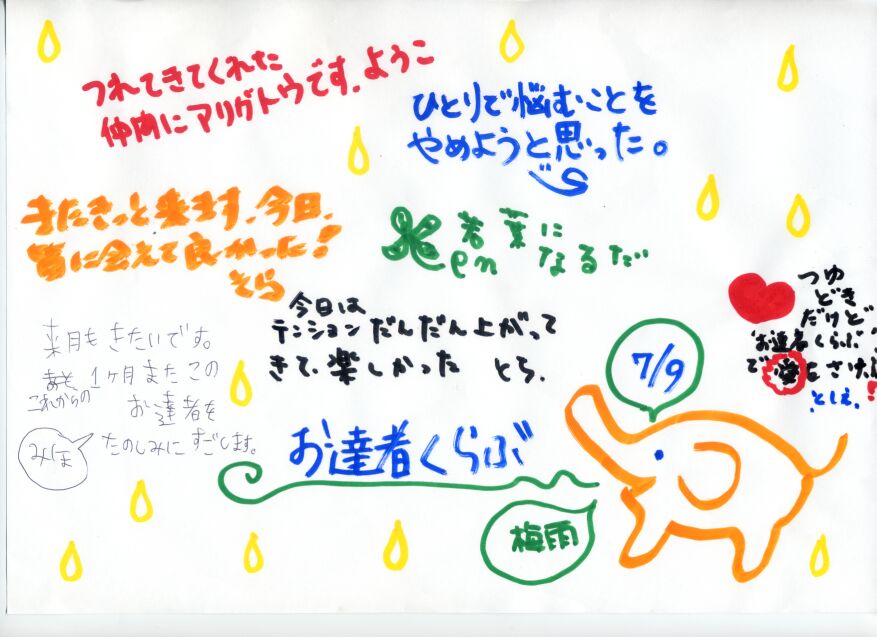 つれてきてくれた
仲間にアリガトウです。ようこ
ひとりで悩むことを
やめようと思った。
またきっと来ます。今日、
皆に会えて良かった!
そら
若葉に
なるだ
en
今日は
テンションだんだん上がって
きて、楽しかった とち.
つゆ
どき
だけど
お達者くらぶ
で愛はさけぶ!
としえ.
来月もきたいです。
これからの1ヶ月またこの
お達者を
たのしみにすごします。
みほ
7/9
お達者くらぶ
梅雨